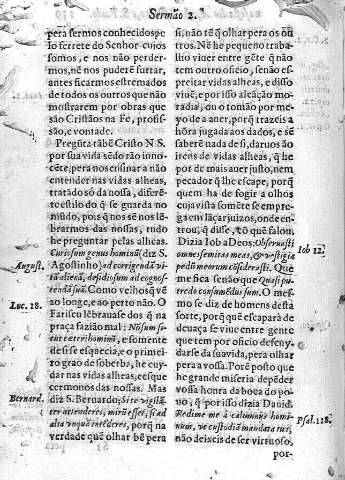 Sermão 2.
pera sermos conhecidos pe
lo ferrete do Senhor cujos
somos, e nos não perder-
mos, nẽ nos puderẽ furtar,
antes ficarmos estremados
de todos os outros que não
mostrarem por obras que
são Cristãos na Fe, profis-
são, e vontade.
Pregũta tãbẽ Cristo N. S.
por sua vida sẽdo tão inno-
cẽte, pera nos ensinar a não
entender nas vidas alheas,
tratãdo só da nossa, difere-
te estilo do q̃ se guarda no
mũdo, pois q̃ nos sẽ nos lẽ-
brarmos das nossas, tudo
he preguntar pelas alheas.
Curiosum genus hominũ diz S.
Agostinho ad corrigendã vi-
tã alienã, desidiosum ad cognos-
cendã suã. Como velhos vẽ
ao longe, e ao perto não. O
Fariseu lẽbrause dos q̃ na
praça fazião mal: Nõ sum si-
cut cæteri hominũ, e somente
de si se esquecia, e o primei-
ro grao de soberba, he cuy-
dar nas vidas alheas, e esque
cermonos das nossas: Mas
diz S. Bernardo: Si te vigilã-
ter attenderes, mirũ esset, si ad
alia unquã intẽderes, porq̃ na
verdade quẽ olhar bẽ pera
August.
Luc. 18.
Bernard.
si, não tẽ q̃ olhar pera os ou
tros. Nẽ he pequeno traba-
lho viver entre gẽte q̃ não
tem outro oficio, senão es-
preitar vidas alheas, e disso
viuẽ, e por isso alcação mo-
radia, ou o tomão por me-
yo de a auer, porq̃ trazeis a
hõra jugada aos dados, e sẽ
saberẽ nada de si, daruos ão
itens de vidas alheas, q̃ he
por de mais auer justo, nem
pecador q̃ lhe escape, porq̃
quem ha de fogir a olhos
cuja vista somẽte se empre-
ga em laçar juizos, onde en-
trou, q̃ disse, q̃ tõ que falou.
Dizia Iob a Deos: Observasti
omnes semitas meas, & vestigia
pedũ meorum cõsiderasti. Que
me fica senão que Quasi pu-
tredo consumẽdus sum. O mes-
mo se diz de homens desta
sorte, porq̃ quẽ escapará de
cuua ça se viue entre gente
que tem por oficio defeny-
darse da sua vide, pera olhar
pera a vossa. Porẽ posto que
he grande miseria depẽder
vossa honra da boca do po
uo, q̃ por isso dizia Dauid.
Redime me à calumniis homi-
num, vt custodiã mandata tua,
não deixeis de ser virtuoso,
por-
Iob 12.
Psal. 118.